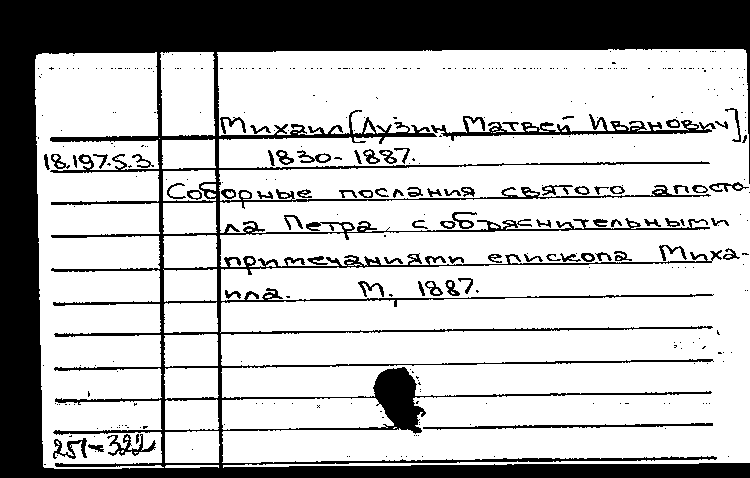 Михаил [Лузин, Матвей Иванович],
18.197.5.3. 1830-1887.
Соборные послания святого апосто-
ла Петра с объяснительными
примечаниями епископа Миха-
ила. М., 1887.
251-322